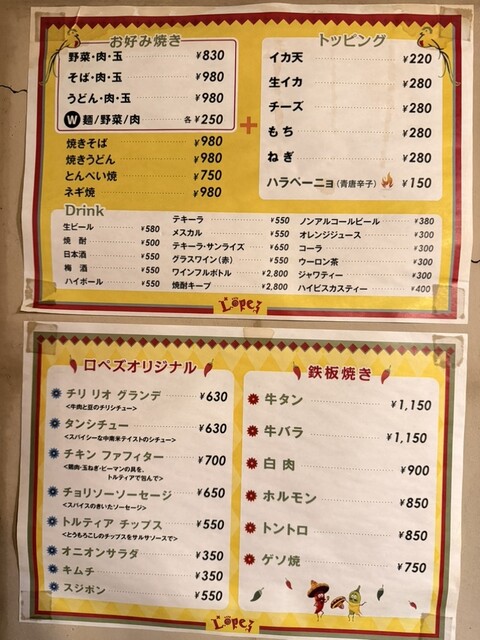 お好み焼き
野菜・肉・玉 ¥830
そば・肉・玉 ¥980
うどん・肉・玉 ¥980
W 麺/野菜/肉 各¥250
焼きそば ¥980
焼きうどん ¥980
とんぺい焼 ¥750
ネギ焼 ¥980
+
トッピング
イカ天 ¥220
生イカ ¥280
チーズ ¥280
もち ¥280
ねぎ ¥280
ハラペーニョ(青唐辛子) ¥150
Drink
生ビール ¥580
焼酎 ¥500
日本酒 ¥550
梅酒 ¥550
ハイボール ¥550
テキーラ ¥550
メスカル ¥550
テキーラ・サンライズ ¥650
グラスワイン(赤) ¥550
ワインフルボトル ¥2,800
焼酎キープ ¥2,800
ノンアルコールビール ¥380
オレンジジュース ¥300
コーラ ¥300
ウーロン茶 ¥300
ジャワティー ¥300
ハイビスカスティー ¥400
Lopez
ロペズオリジナル
チリ リオ グランデ ¥630
<牛肉と豆のチリシチュー>
タンシチュー ¥630
<スパイシーな中南米テイストのシチュー>
チキン ファフィター ¥700
<鶏肉・玉ねぎ・ピーマンの具を、
トルティアで包んで>
チョリソーソーセージ ¥650
<スパイスのきいたソーセージ>
トルティア チップス ¥550
<とうもろこしのチップスをサルサソースで>
オニオンサラダ ¥350
キムチ ¥350
スジポン ¥550
鉄板焼き
牛タン ¥1,150
牛バラ ¥1,150
白肉 ¥900
ホルモン ¥850
トントロ ¥850
ゲソ焼 ¥750
Lopez